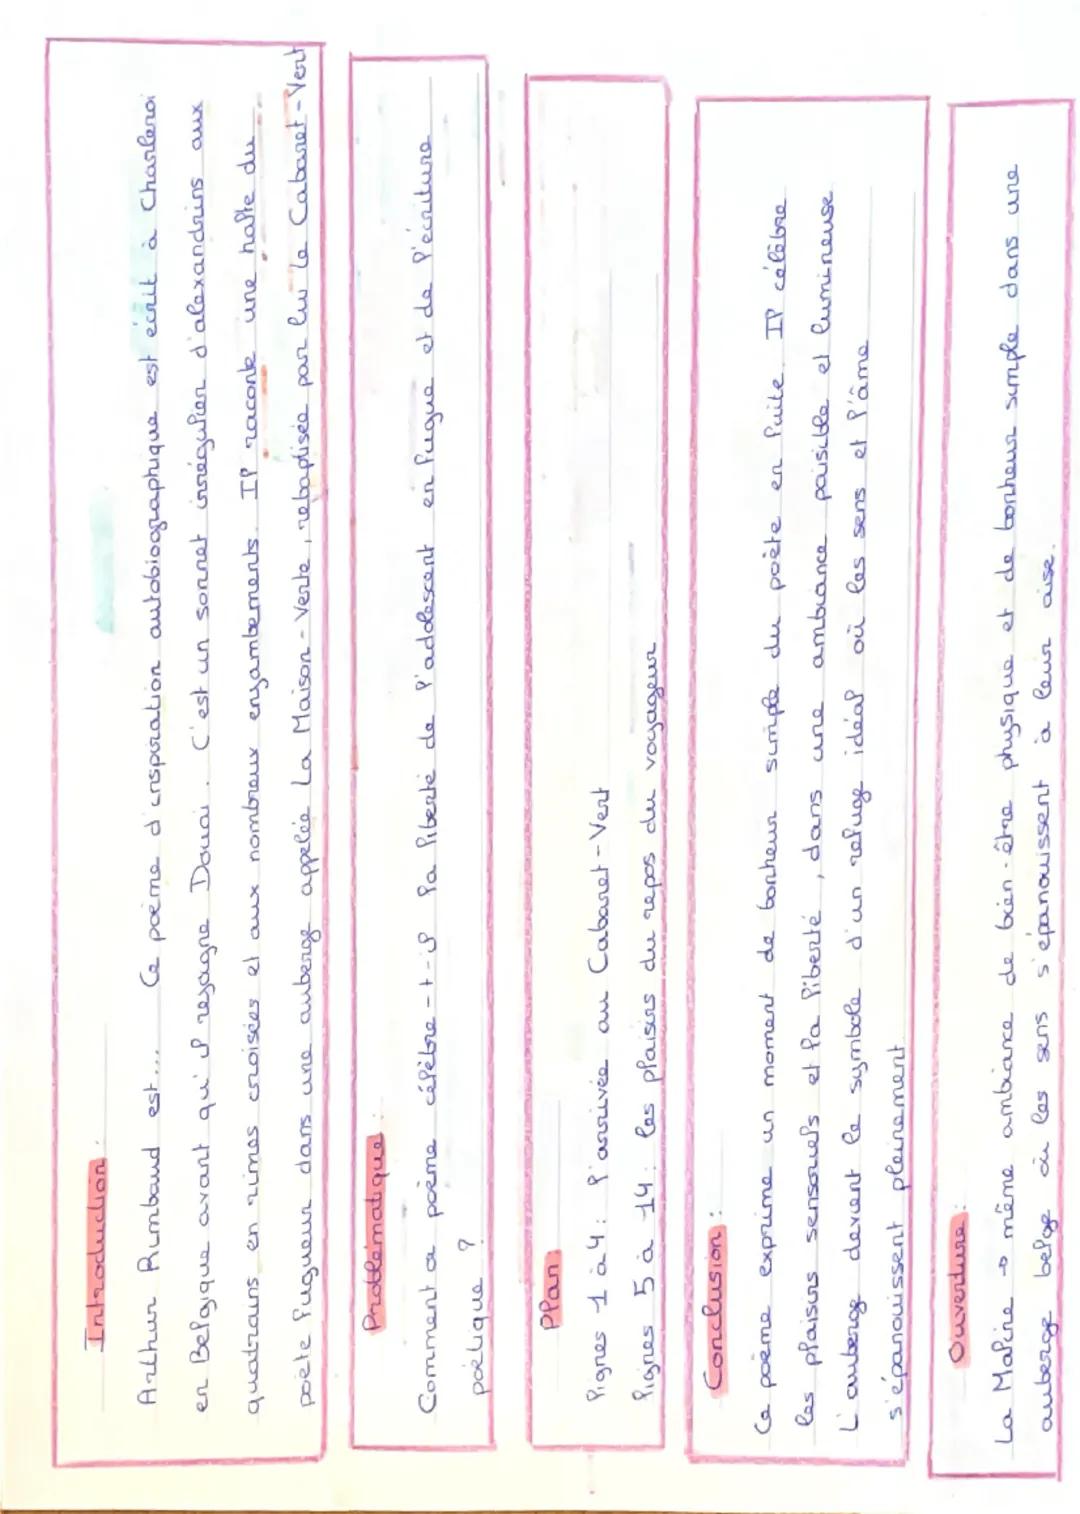 Introduction :
Arthur Rimbaud est... Ce poème d'inspiration autobiographique est écrit à Charleroi
en Belgique avant qu'il rejagne Douai. C'est un sonnet irrégulier d'alexandrins aux
quatrains en rimes croisées et aux nombreux enjambements. Il raconte une halte du
poète fugueur dans une auberge appelée La Maison-Verte, rebaptisée par lui le Cabaret-Vert
Problématique :
Comment ce poème célèbre-t-il la liberté de l'adolescent en fugue et de l'écriture
poétique ?
Plan :
lignes 1 à 4 : l'arrivée au Cabaret-Vert
lignes 5 à 14 : les plaisirs du repos du voyageur
Conclusion :
Ce poème exprime un moment de bonheur simple du poète en fuite. Il célèbre
les plaisirs sensoriels et la liberté, dans une ambiance paisible et lumineuse.
L'auberge devient le symbole d'un refuge idéal où les sens et l'âme
s'épanouissent pleinement.
Ouverture :
La Maline → même ambiance de bien-être physique et de bonheur simple dans une
auberge belge où les sens s'épanouissent à leur aise.